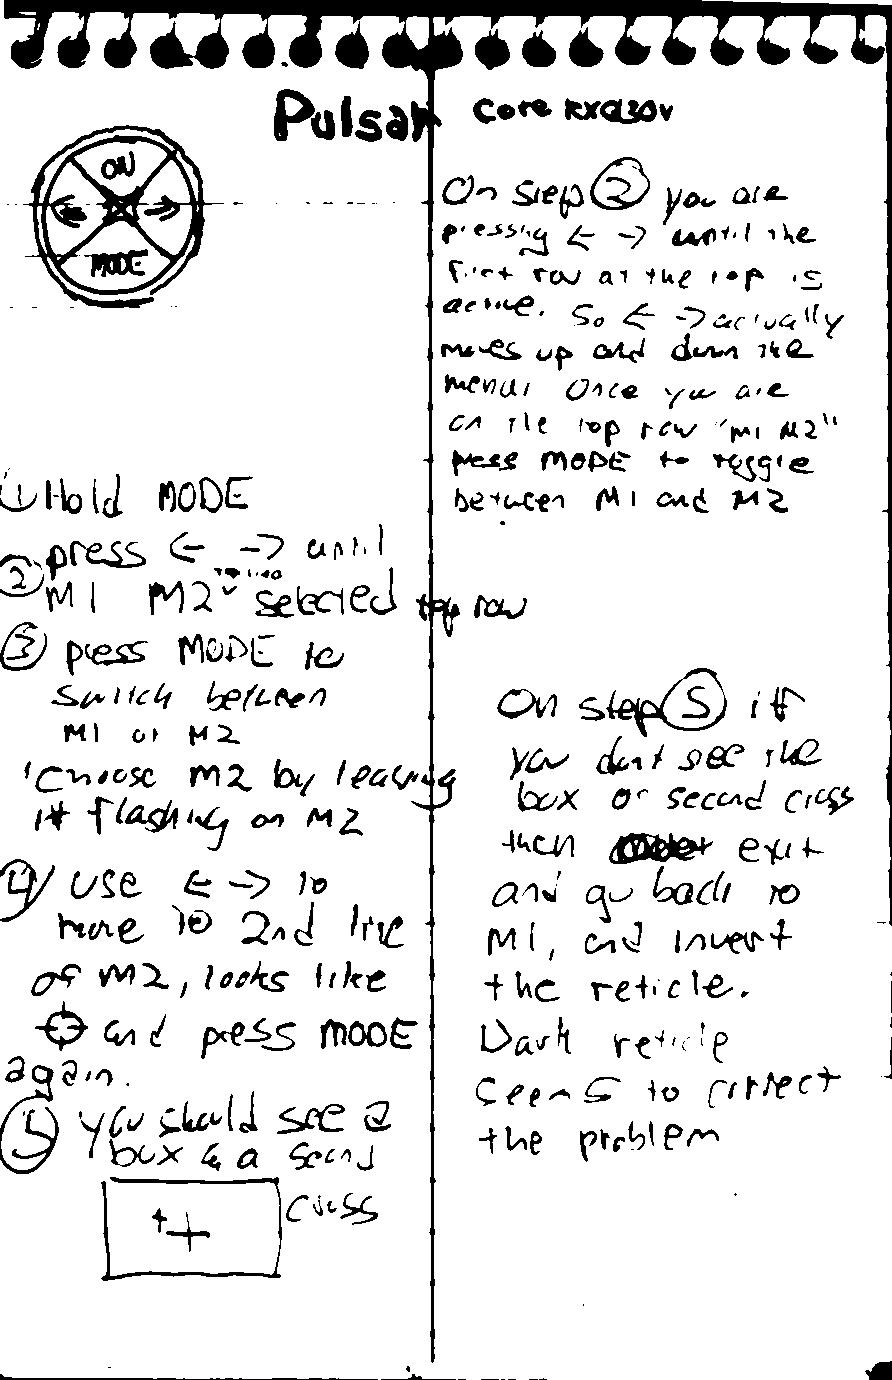 Pulsar Core RXQ30V
ON
← →
MODE
① Hold MODE
② press ← → until
M1 M2 selected top row
③ press MODE to
switch between
M1 or M2
Choose M2 by leaving
it flashing on M2
④ use ← → to
move to 2nd line
of M2, looks like
and press MODE
again.
⑤ you should see a
box & a second
cross
On step ② you are
pressing ← → until the
first row at the top is
active. So ← → actually
moves up and down the
menu. Once you are
on the top row "M1 M2"
press MODE to toggle
between M1 and M2
On step ⑤ if
you dont see the
box or second cross
then exit
and go back to
M1, and invert
the reticle.
Dark reticle
seems to correct
the problem